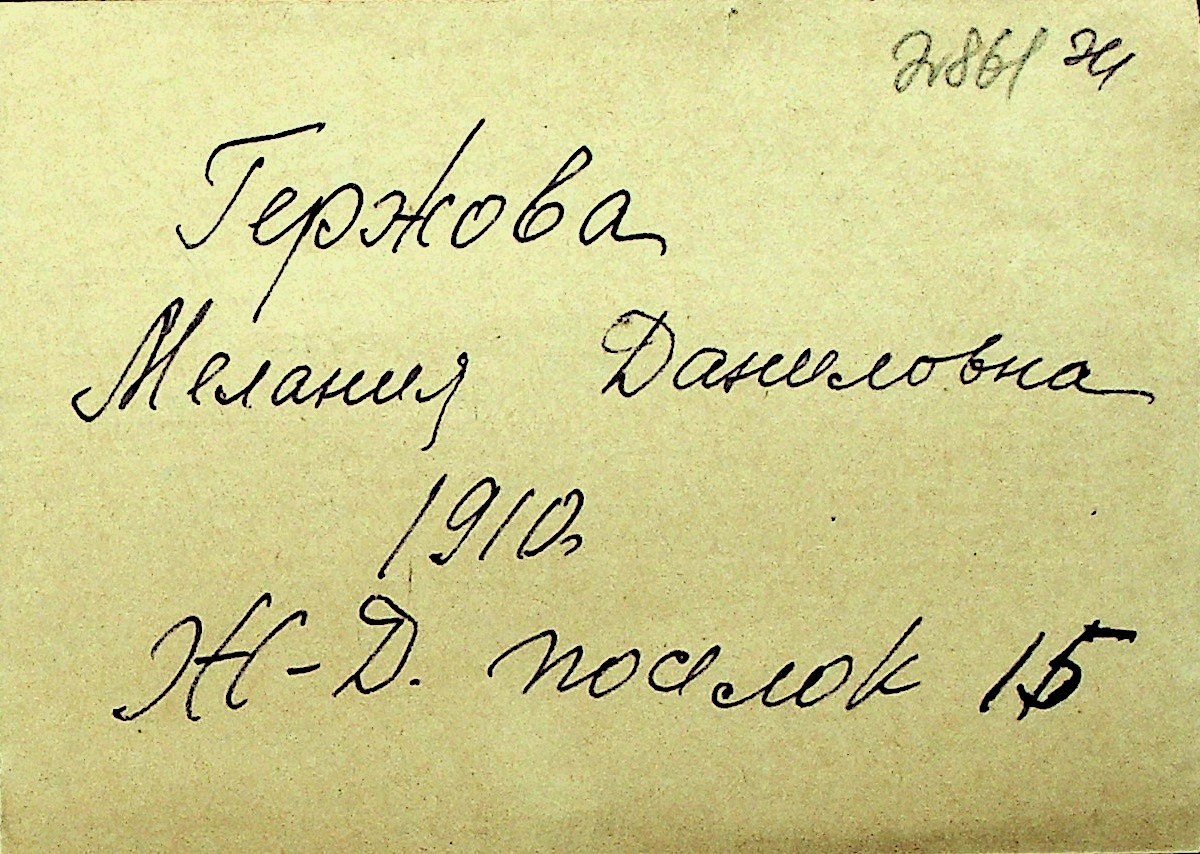 Гержова
Мелания Даниловна
1910
Ж-Д. поселок 15